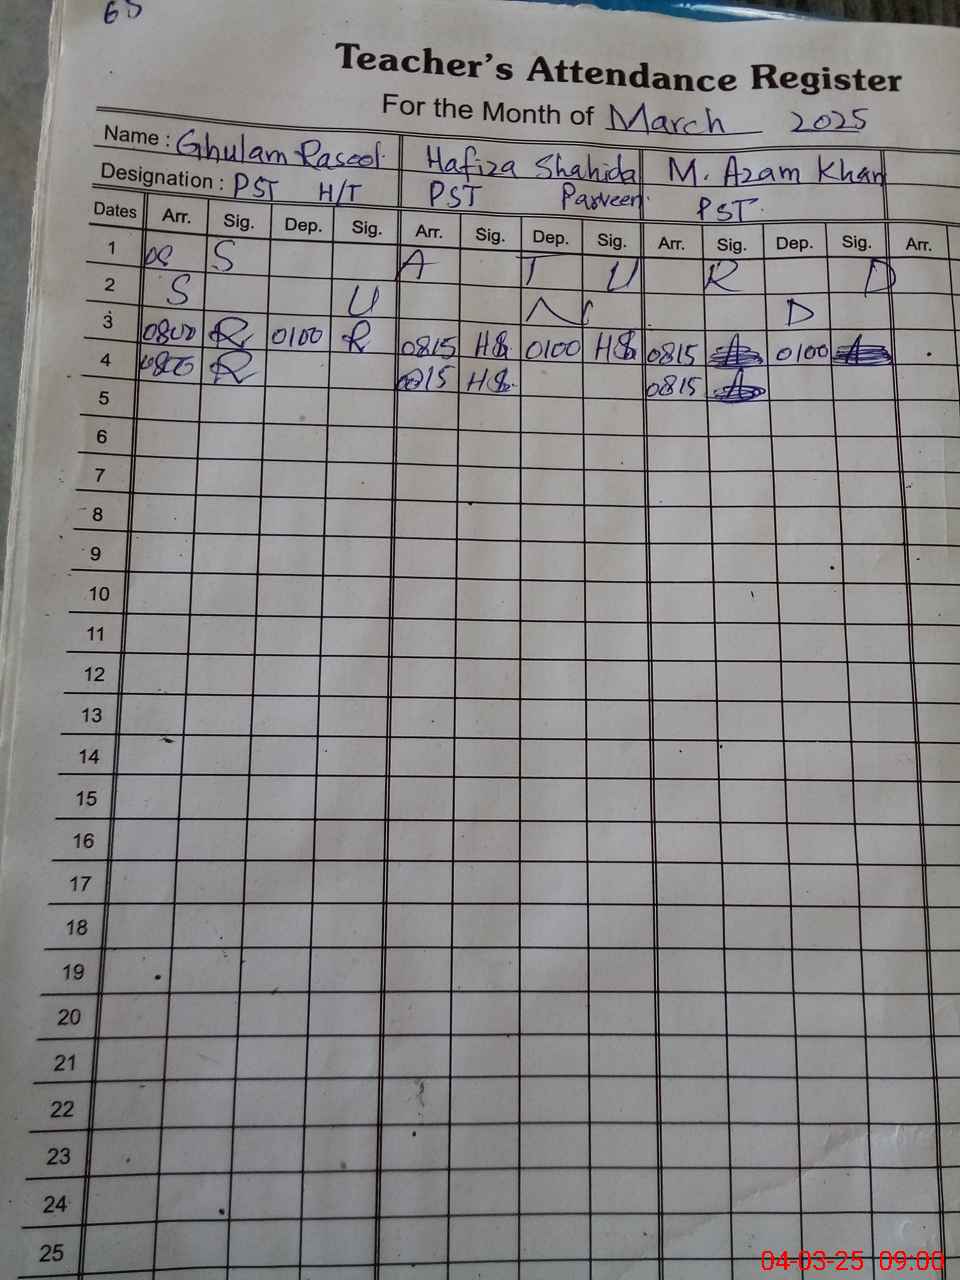 Teacher's Attendance Register
For the Month of March 2025
Name : Ghulam Rasool Hafiza Shahida M. Azam Khan
Designation : PST H/T PST Parveen PST
Dates Arr. Sig. Dep. Sig. Arr. Sig. Dep. Sig. Arr. Sig. Dep. Sig. Arr.
1 S A T U R D
2 S U N D
3 0800 R 0100 R 0815 HS 0100 HS 0815 0100
4 0800 R 0815 HS 0815
5
6
7
8
9
10
11
12
13
14
15
16
17
18
19
20
21
22
23
24
25
04-03-25 09:00